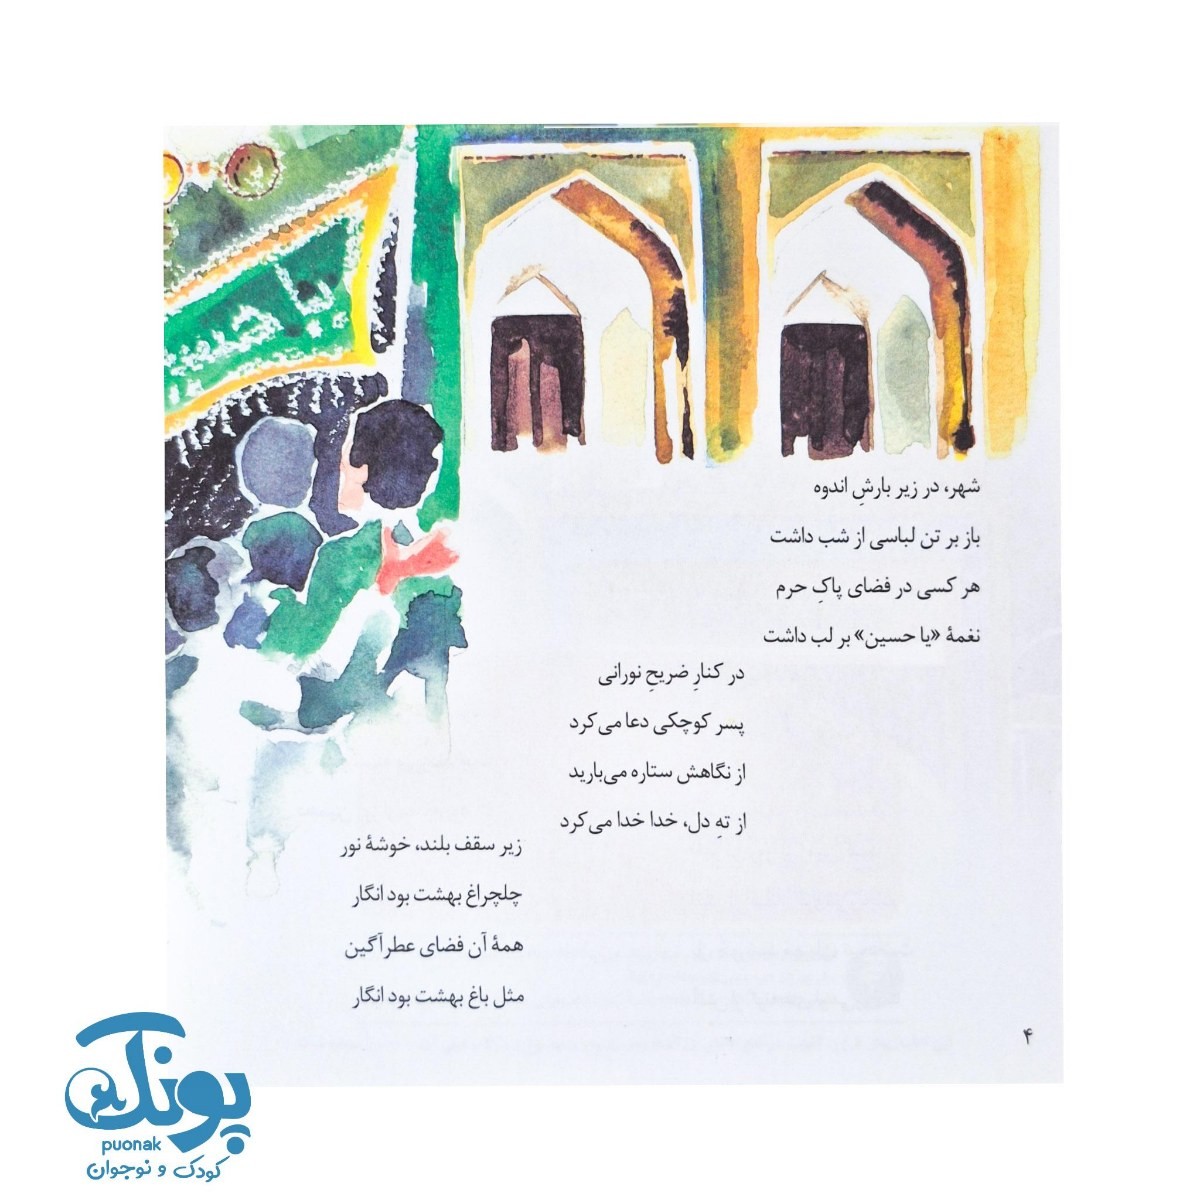 یا حسین
شهر، در زیر بارشِ اندوه
باز بر تن لباسی از شب داشت
هر کسی در فضای پاکِ حرم
نغمهٔ «یا حسین» بر لب داشت
در کنارِ ضریحِ نورانی
پسر کوچکی دعا می‌کرد
از نگاهش ستاره می‌بارید
از تهِ دل، خدا خدا می‌کرد
زیر سقف بلند، خوشهٔ نور
چلچراغ بهشت بود انگار
همهٔ آن فضای عطرآگین
مثل باغ بهشت بود انگار
۴
پونک
puonak
کودک و نوجوان